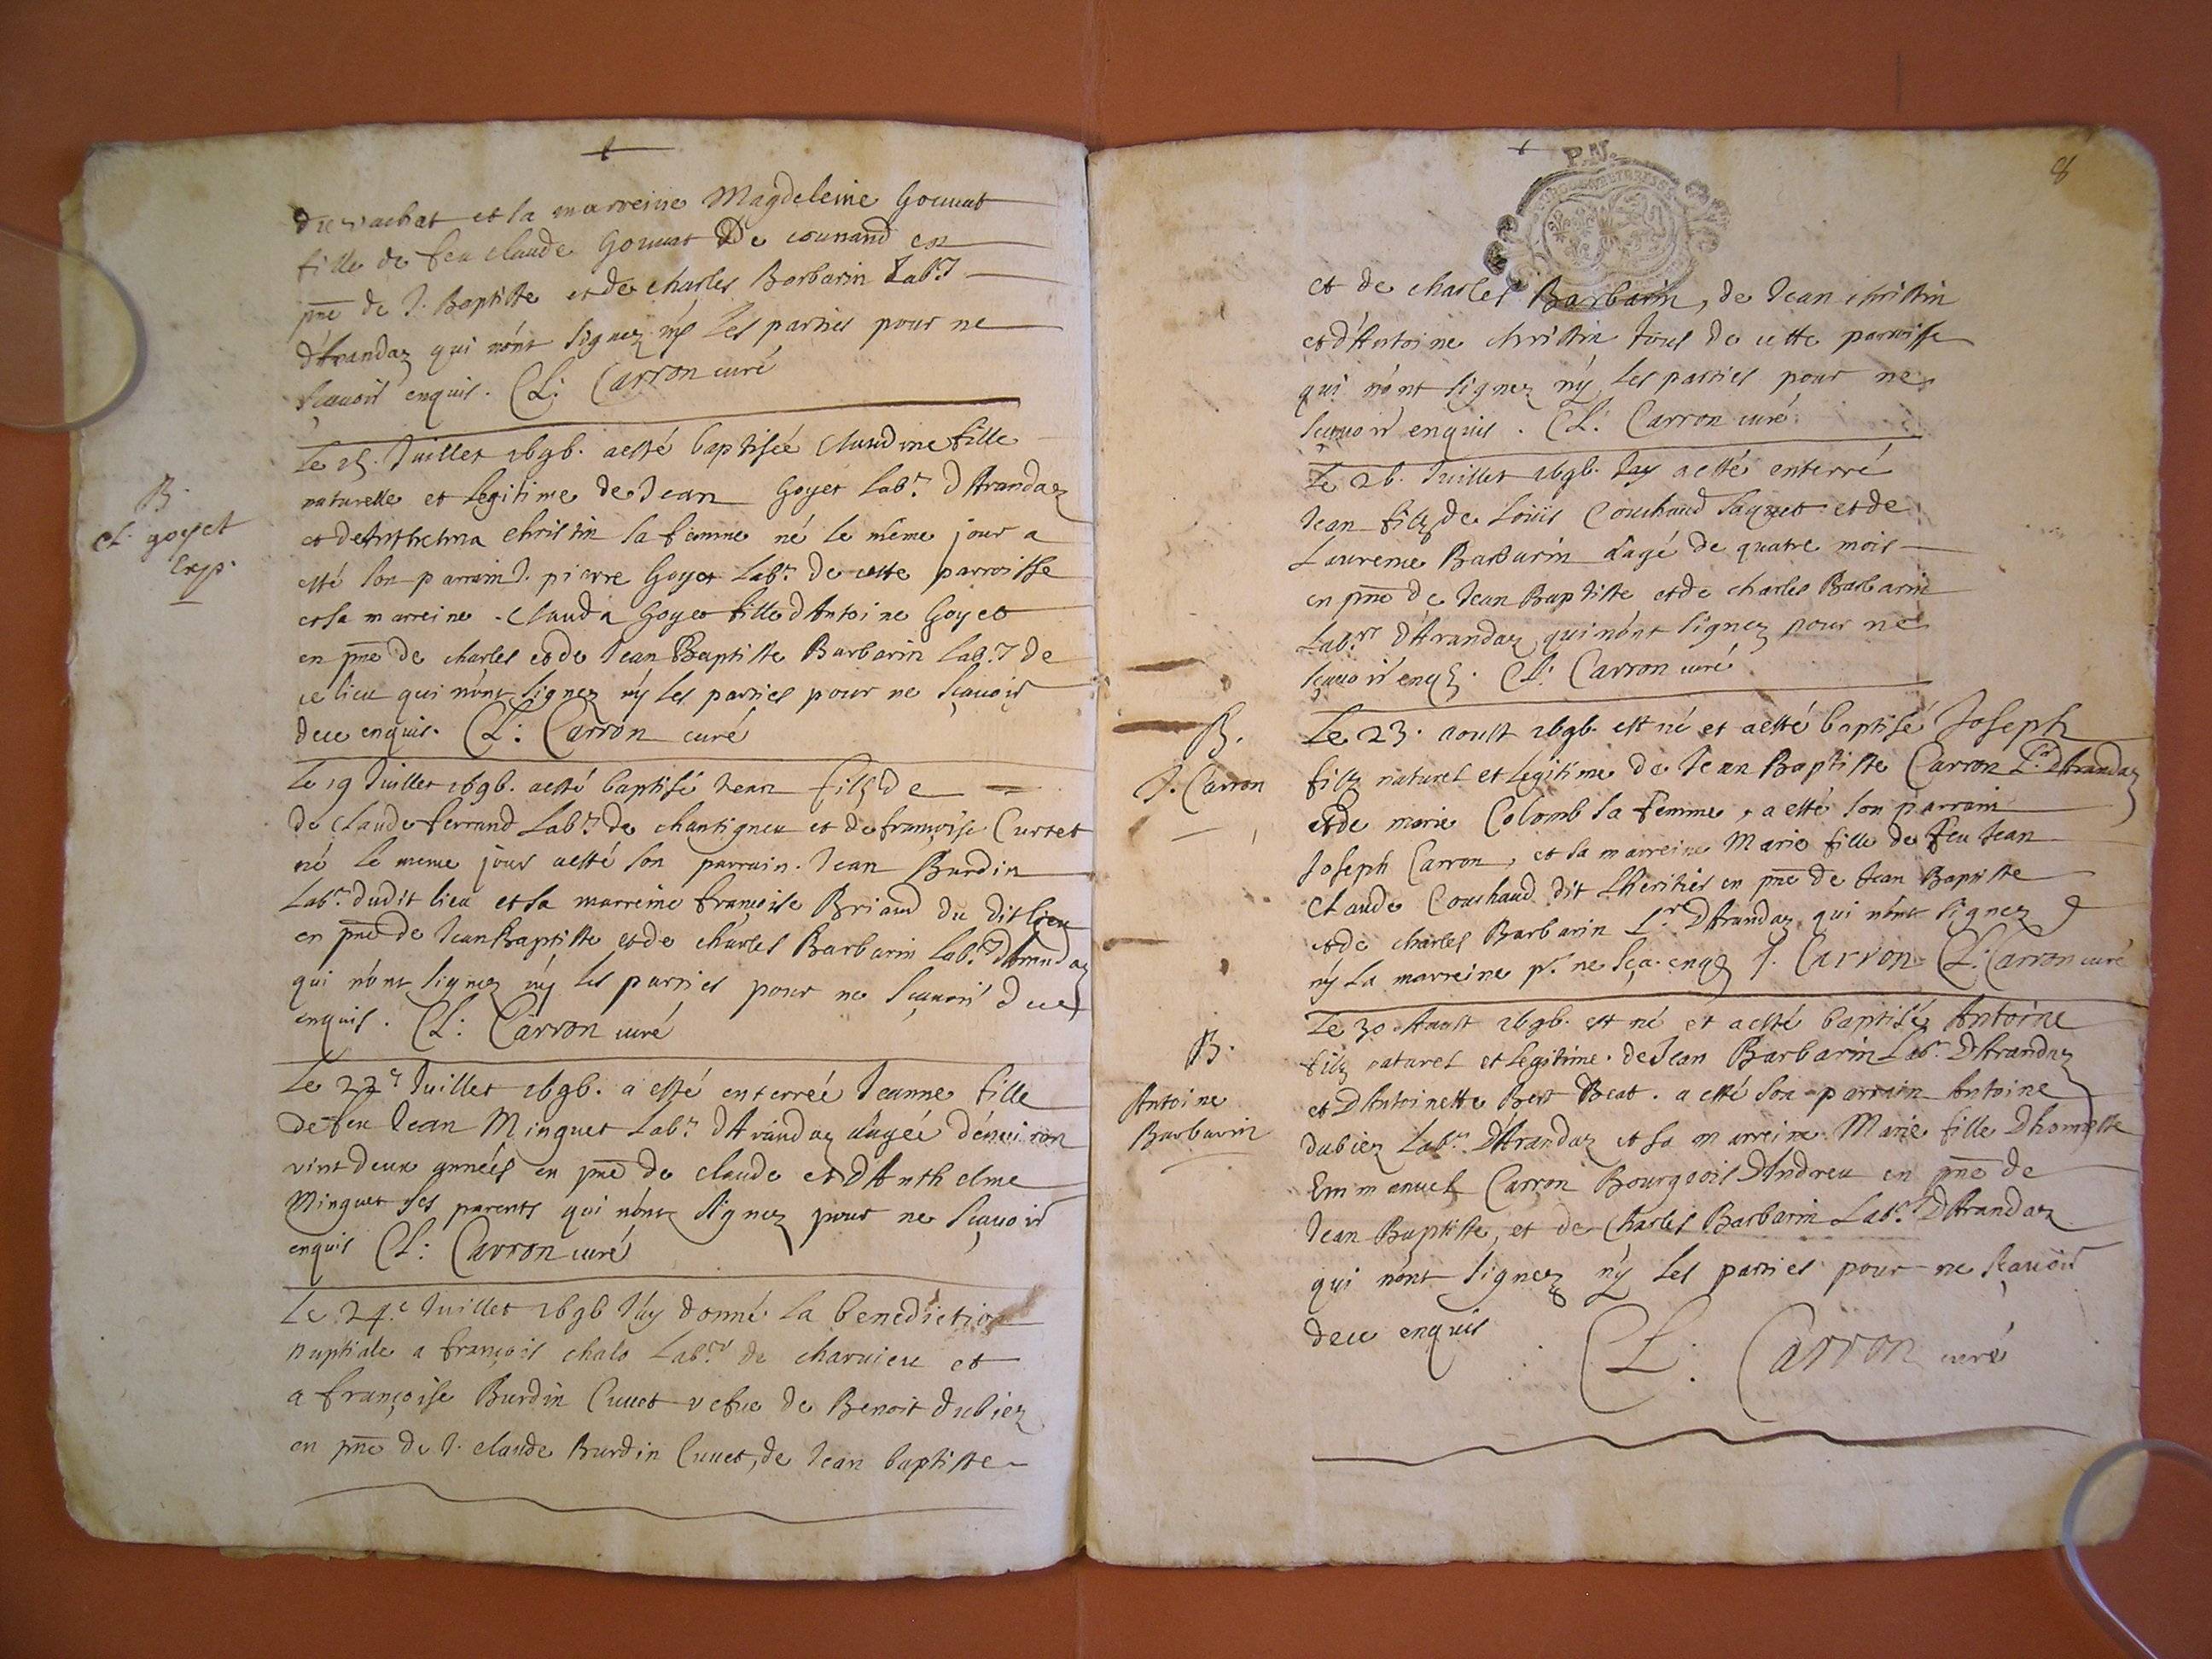 du rachat et la marreine Magdeleine Gouuat
fille de feu claude Gouuat De counand en
pñe de J. Baptiste et de charles Barbarin Labrs
d'Arandaz qui n'ont signez ny les parties pour ne
sçauoir enquis. Cl: Carron curé
B.
cl. goyet
exp.
Le 15. Juillet 1696. a esté baptisée Claudine fille
naturelle et legitime de Jean Goyet Labr. d'Arandaz
et de Anthelma christin sa femme né le même jour a
esté son parrain J. pierre Goyet Labr. de cette parroisse
et sa marreine Clauda Goyet fille d'Antoine Goyet
en pñe de charles et de Jean Baptiste Barbarin Labrs de
ce lieu qui n'ont signez ny les parties pour ne sçauoir
deue enquis. Cl: Carron curé
Le 19 Juillet 1696. a esté baptisé Jean filz de
de Claude ferrand Labr. de chantigneu et de françoise Curtet
né le meme jour a esté son parrain Jean Burdin
Labr. dudit lieu et sa marreine françoise Briand du dit lieu
en pñe de Jean Baptiste et de charles Barbarin Labrs d'Arandaz
qui n'ont signez ny les parties pour ne sçauoir deue
enquis. Cl: Carron curé
Le 22e Juillet 1696. a esté enterreé Jeanne fille
de feu Jean Minguet Labr. d'Arandaz aageé d'enuiron
vint deux anneés en pñe de claude et d'Anthelme
Minguet ses parents qui n'ont signez pour ne sçauoir
enquis Cl: Carron curé
Le 24.e Juillet 1696 J'ay donné la benediction
nuptiale a françois chalo Labr de charuieu et
a françoise Burdin Cuuet vefue de Benoit dubiez
en pñe de J. claude Burdin Cuuet, de Jean baptiste
8
et de charles Barbarin, de Jean christin
et d'Antoine christin tous de cette parroisse
qui n'ont signez ny les parties pour ne
sçauoir enquis. Cl: Carron curé
Le 26. Juillet 1696. Jay a esté enterré
Jean filz de Louis Couchoud saquet et de
Laurence Barbarin aagé de quatre mois
en pñe de Jean Baptiste et de charles Barbarin
Labrs d'Arandaz qui n'ont signez pour ne
sçauoir enqs. Cl: Carron curé
B.
J. Carron
Le 23. aoust 1696. est né et a esté baptisé Joseph
filz naturel et legitime de Jean Baptiste Carron Lr. d'Arandaz
et de marie Colomb sa femme, a esté son parrain
Joseph Carron, et sa marreine Marie fille de feu Jean
Claude Couchoud dit L'heritier en pñe de Jean Baptiste
et de charles Barbarin Lrs D'Arandaz qui n'ont signez
ny la marreine pr. ne sça. enqs J. Carron Cl: Carron curé
B.
Antoine
Barbarin
Le 30 Aoust 1696. est né et a esté baptisé Antoine
filz naturel et legitime de Jean Barbarin Labr. D'Arandaz
et D'Antoinette Bert Beat. a esté son parrain Antoine
dubiez Labr. D'Arandaz et sa marreine Marie fille D'honeste
Emmanuel Carron Bourgeois D'Andreu en pñe de
Jean Baptiste, et de Charles Barbarin Labrs D'Arandaz
qui n'ont signez ny les parties pour ne sçauoir
deue enquis Cl: Carron curé